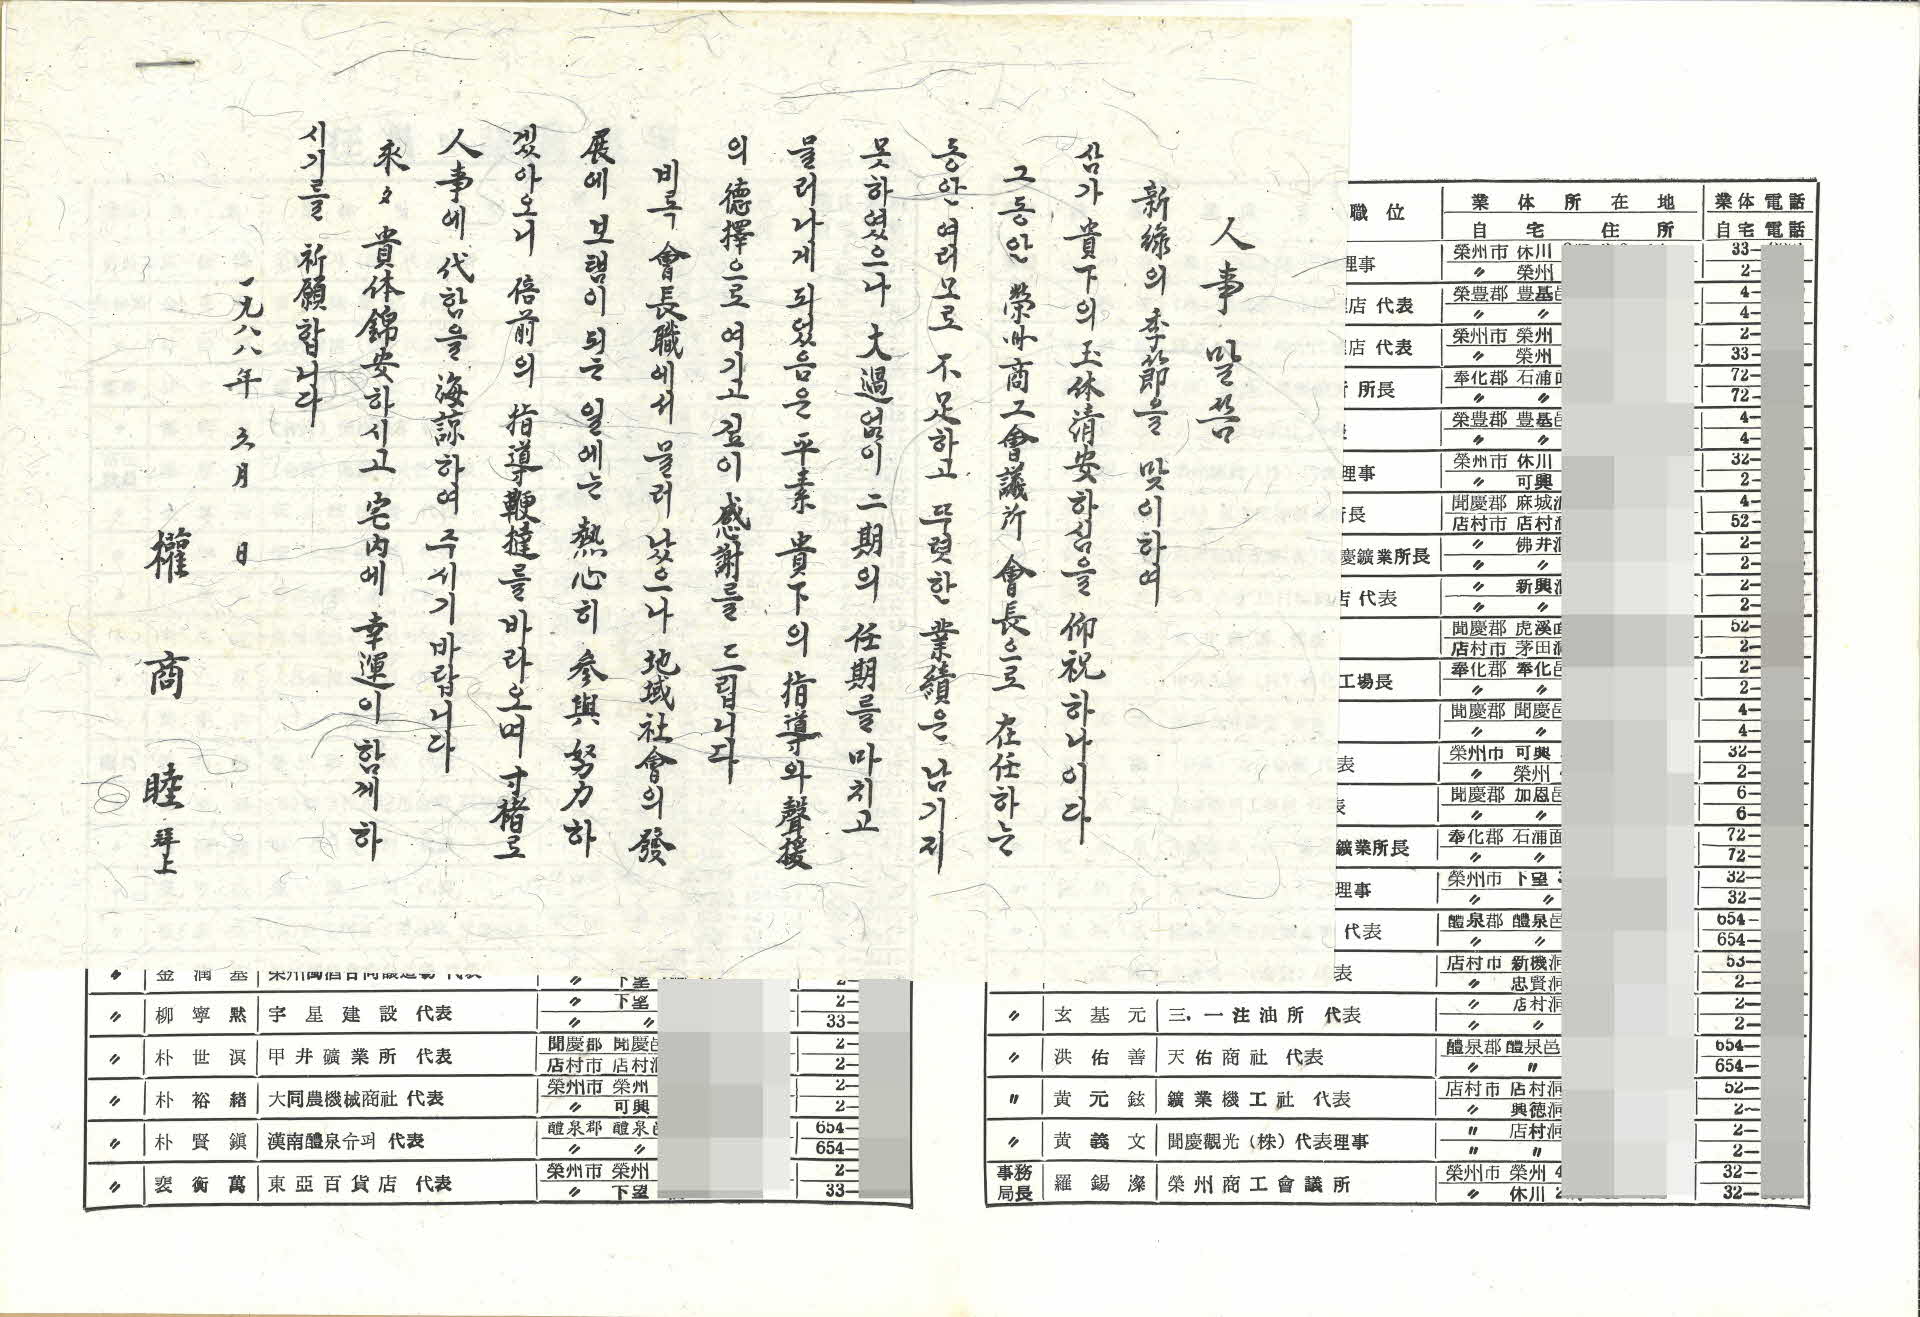 人事 말씀
新綠의 季節을 맞이하여
삼가 貴下의 玉体淸安하심을 仰祝하나이다
그동안 榮州商工會議所 會長으로 在任하는
동안 여러모로 不足하고 뚜렷한 業績은 남기지
못하였으나 大過없이 二期의 任期를 마치고
물러나게 되었음은 平素 貴下의 指導와 聲援
의 德擇으로 여기고 깊이 感謝를 드립니다
비록 會長職에서 물러 났으나 地域社會의 發
展에 보탬이 되는 일에는 熱心히 參與 努力하
겠아오니 倍前의 指導鞭撻를 바라오며 寸楮로
人事에 代함을 海諒하여 주시기 바랍니다
來々 貴体錦安하시고 宅內에 幸運이 함께 하
시기를 祈願합니다
一九八八年 六月 日
權商睦 拜上
金潤基 代表 〃 下望 2-
〃 柳寧熙 宇星建設 代表 〃 下望 2-
〃 〃 33-
〃 朴世溟 甲井礦業所 代表 聞慶郡 聞慶邑 2-
店村市 店村 2-
〃 朴裕緖 大同農機械商社 代表 榮州市 榮州 2-
〃 可興 2-
〃 朴賢鎭 漢南醴泉슈퍼 代表 醴泉郡 醴泉 654-
〃 〃 654-
〃 裵衡萬 東亞百貨店 代表 榮州市 榮州 2-
〃 下望 33-
職位 業体所在地 業体電話
自宅住所 自宅電話
理事 榮州市 休川 33-
〃 榮州 2-
店 代表 榮豊郡 豊基邑 4-
〃 〃 4-
店 代表 榮州市 榮州 2-
〃 榮州 33-
所長 奉化郡 石浦面 72-
〃 〃 72-
榮豊郡 豊基邑 4-
〃 〃 4-
理事 榮州市 休川 32-
〃 可興 2-
長 聞慶郡 麻城 4-
店村市 店村 52-
慶鑛業所長 〃 佛井 2-
〃 〃 2-
代表 〃 新興 2-
〃 〃 2-
聞慶郡 虎溪面 52-
店村市 茅田 2-
工場長 奉化郡 奉化邑 2-
〃 〃 2-
聞慶郡 聞慶邑 4-
〃 〃 4-
表 榮州市 可興 32-
〃 榮州 2-
表 聞慶郡 加恩邑 6-
〃 〃 6-
鑛業所長 奉化郡 石浦面 72-
〃 〃 72-
理事 榮州市 下望 32-
〃 〃 32-
代表 醴泉郡 醴泉邑 654-
〃 〃 654-
表 店村市 新機洞 53-
〃 忠賢洞 2-
〃 玄基元 三.一注油所 代表 〃 店村洞 2-
〃 〃 2-
〃 洪佑善 天佑商社 代表 醴泉郡 醴泉邑 654-
〃 〃 654-
〃 黃元鉉 鑛業機工社 代表 店村市 店村洞 52-
〃 興德洞 2-
〃 黃義文 聞慶觀光(株)代表理事 〃 店村洞 2-
〃 〃 2-
事務局長 羅錫燦 榮州商工會議所 榮州市 榮州 32-
〃 休川 32-